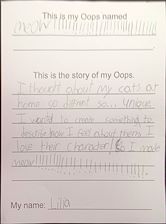 This is my Oops named
meow!!!!!!!!!!!!!!!!
This is the story of my Oops.
I thought about my cats at
home so diffrent so... unique.
I wanted to create something to
describe how I feel about them. I
love their character! So I made
meow!!!!!!!!!!!!!!!!!!!!
My name: Lilla